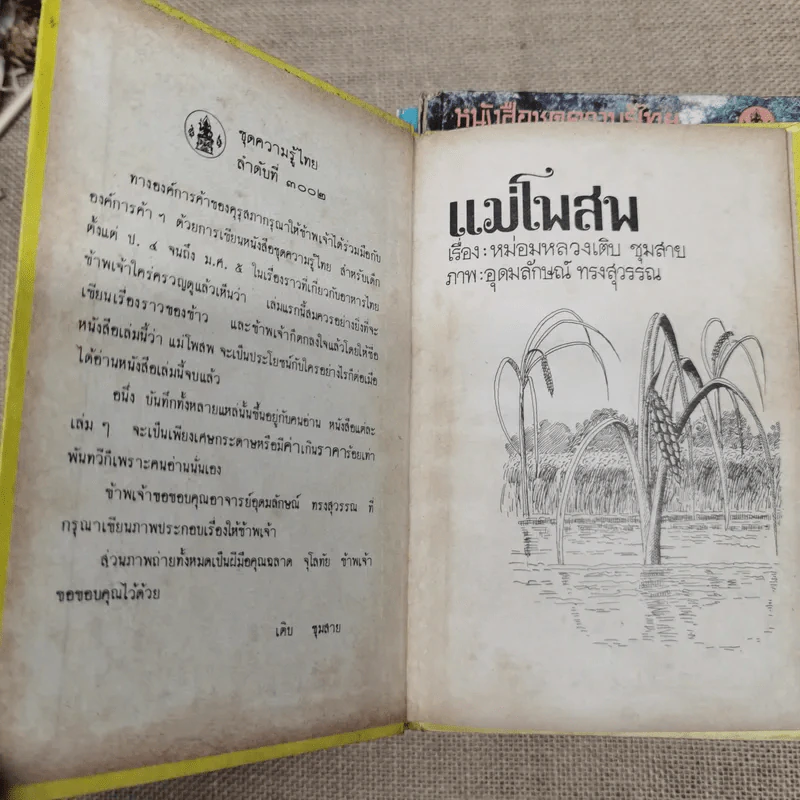 ชุดความรู้ไทย
ลำดับที่ ๓๐๐๒
ทางองค์การค้าของคุรุสภากรุณาให้ข้าพเจ้าได้ร่วมมือกับ
องค์การค้า ฯ ด้วยการเขียนหนังสือชุดความรู้ไทย สำหรับเด็ก
ตั้งแต่ ป. ๔ จนถึง ม.ศ. ๕ ในเรื่องราวที่เกี่ยวกับอาหารไทย
ข้าพเจ้าใคร่ครวญดูแล้วเห็นว่า เล่มแรกนี้สมควรอย่างยิ่งที่จะ
เขียนเรื่องราวของข้าว และข้าพเจ้ากิดกลงใจแล้วโดยให้ชื่อ
หนังสือเล่มนี้ว่า แม่โพสพ จะเป็นประโยชน์กับใครอย่างไรก็ต่อเมื่อ
ได้อ่านหนังสือเล่มนี้จบแล้ว
อนึ่ง บันทึกทั้งหลายแหล่นั้นขึ้นอยู่กับคนอ่าน หนังสือแต่ละ
เล่ม ๆ จะเป็นเพียงเศษกระดาษหรือมีค่าเกินราคาร้อยเท่า
พันทวีก็เพราะคนอ่านนั่นเอง
ข้าพเจ้าขอขอบคุณอาจารย์อุดมลักษณ์ ทรงสุวรรณ ที่
กรุณาเขียนภาพประกอบเรื่องให้ข้าพเจ้า
ส่วนภาพถ่ายทั้งหมดเป็นฝีมือคุณฉลาด จุโลทัย ข้าพเจ้า
ขอขอบคุณไว้ด้วย
เติบ ชุมสาย
แม่โพสพ
เรื่อง : หม่อมหลวงเติบ ชุมสาย
ภาพ : อุดมลักษณ์ ทรงสุวรรณ